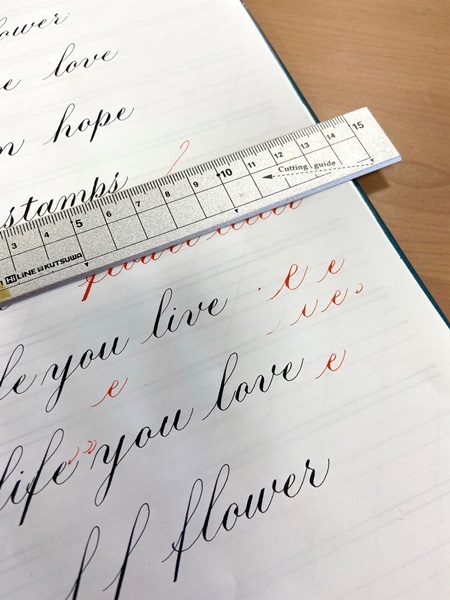 ower
e love
hope
stamps
3 4 5 6 7 8 9 10 11 12 13 14 15
Cutting guide
Hi LINE KUTSUWA
you live e e
e
life you love e
f f flower